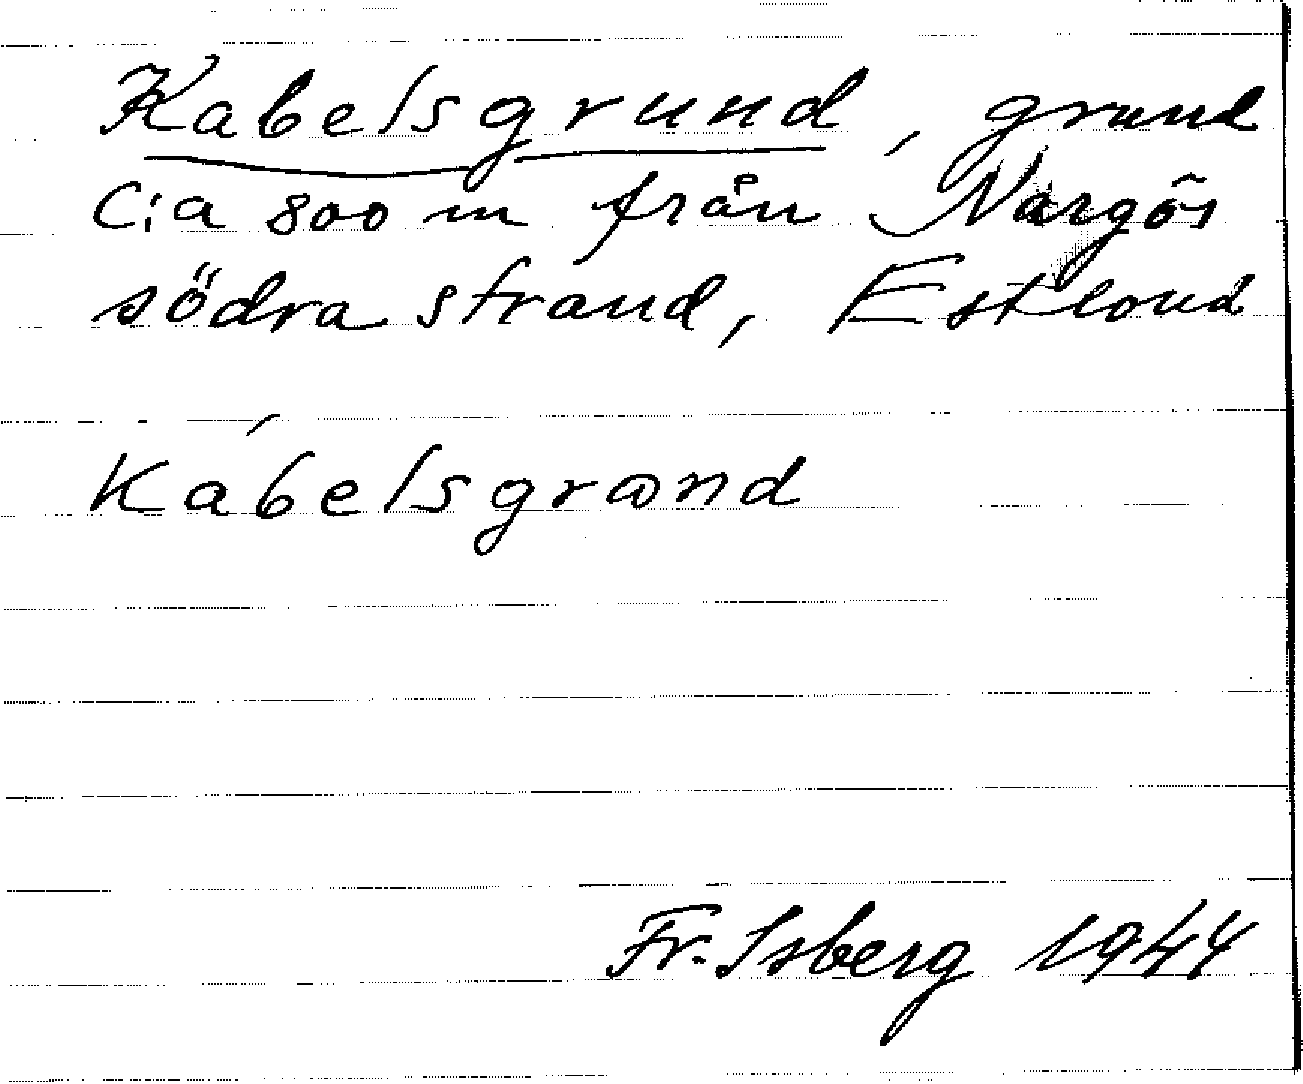 Kabelsgrund, grund
c:a 800 m från Nargös
södra strand, Estland
Kábelsgrωnd
Fr. Isberg 1944